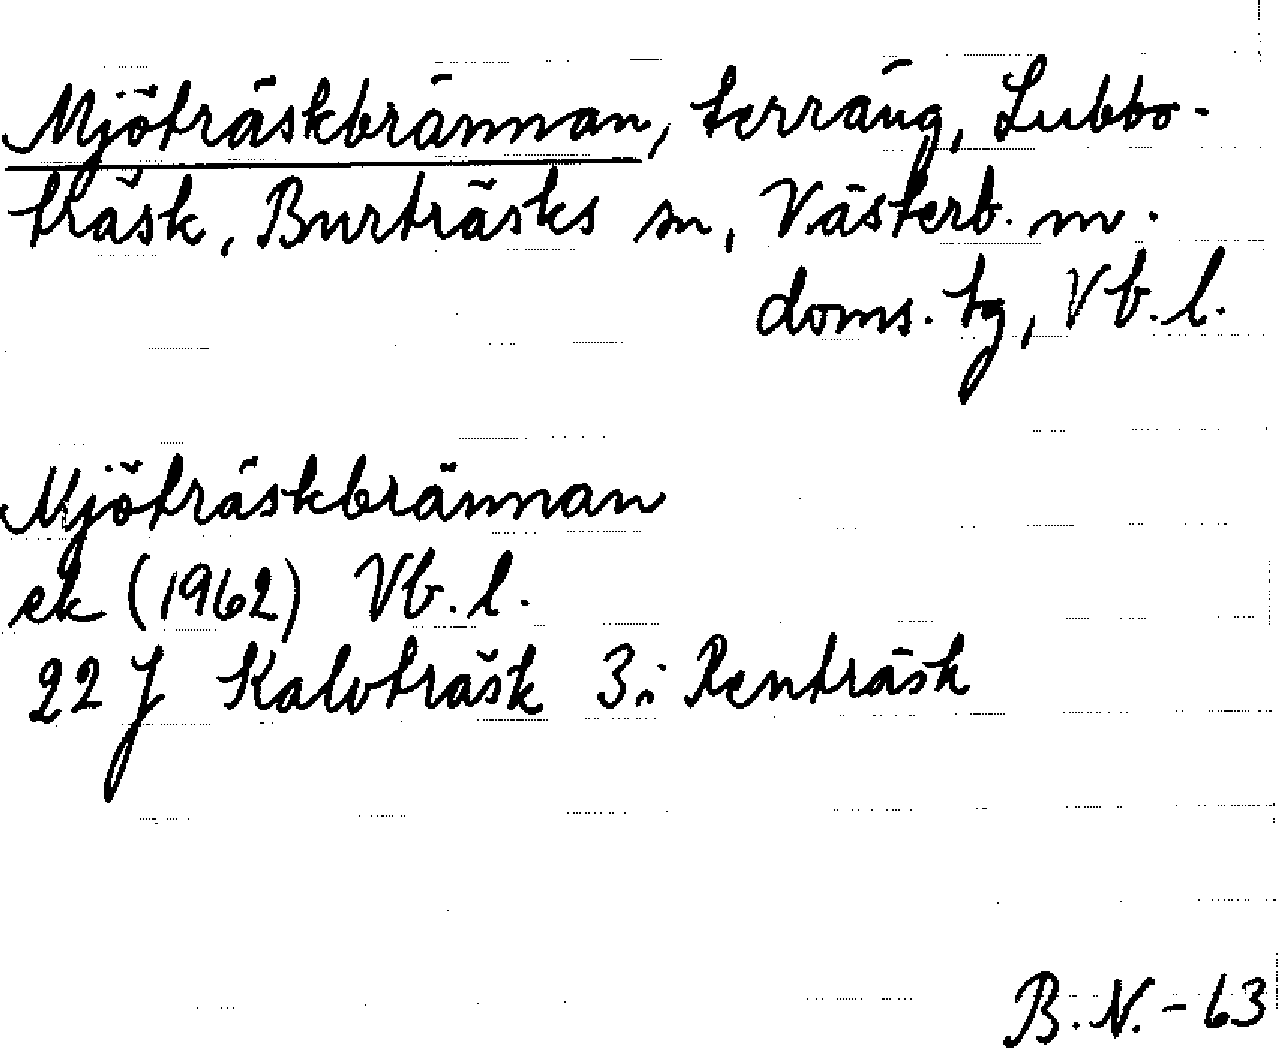 Mjöträskbrännan, terräng, Lubbo-
träsk, Burträsks sn, Västerb. m.
doms. tg, Vb. l.
Mjöträskbrännan
ek (1962) Vb. l.
22 J Kalvträsk 3i Renträsk
B. N. - 63